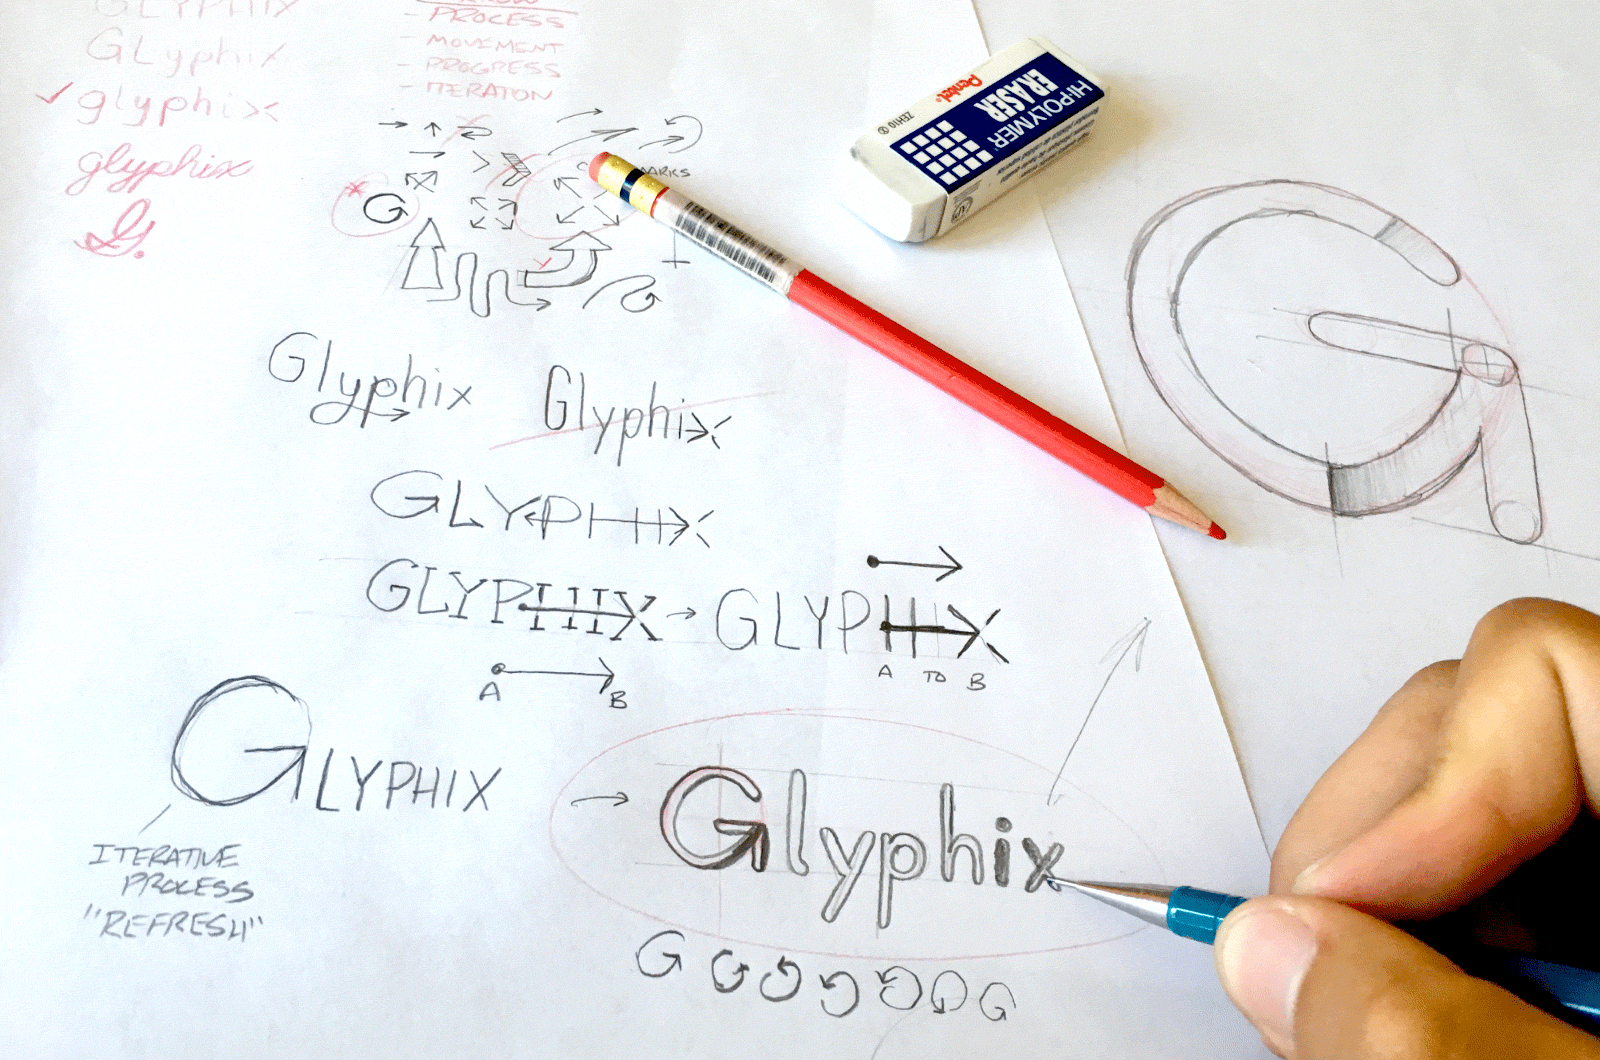 GLYPHIX
GLyphix
glyphix
glyphix
G.
- PROCESS
- MOVEMENT
- PROGRESS
- ITERATON
G
HI-POLYMER
ERASER
Pentel
ZEH10
Glyphix
Glyphix
GLYPHIX
GLYPHIX
GLYPHIX
A TO B
A B
GLYPHIX
ITERATIVE
PROCESS
"REFRESH"
Glyphix
G
G
G